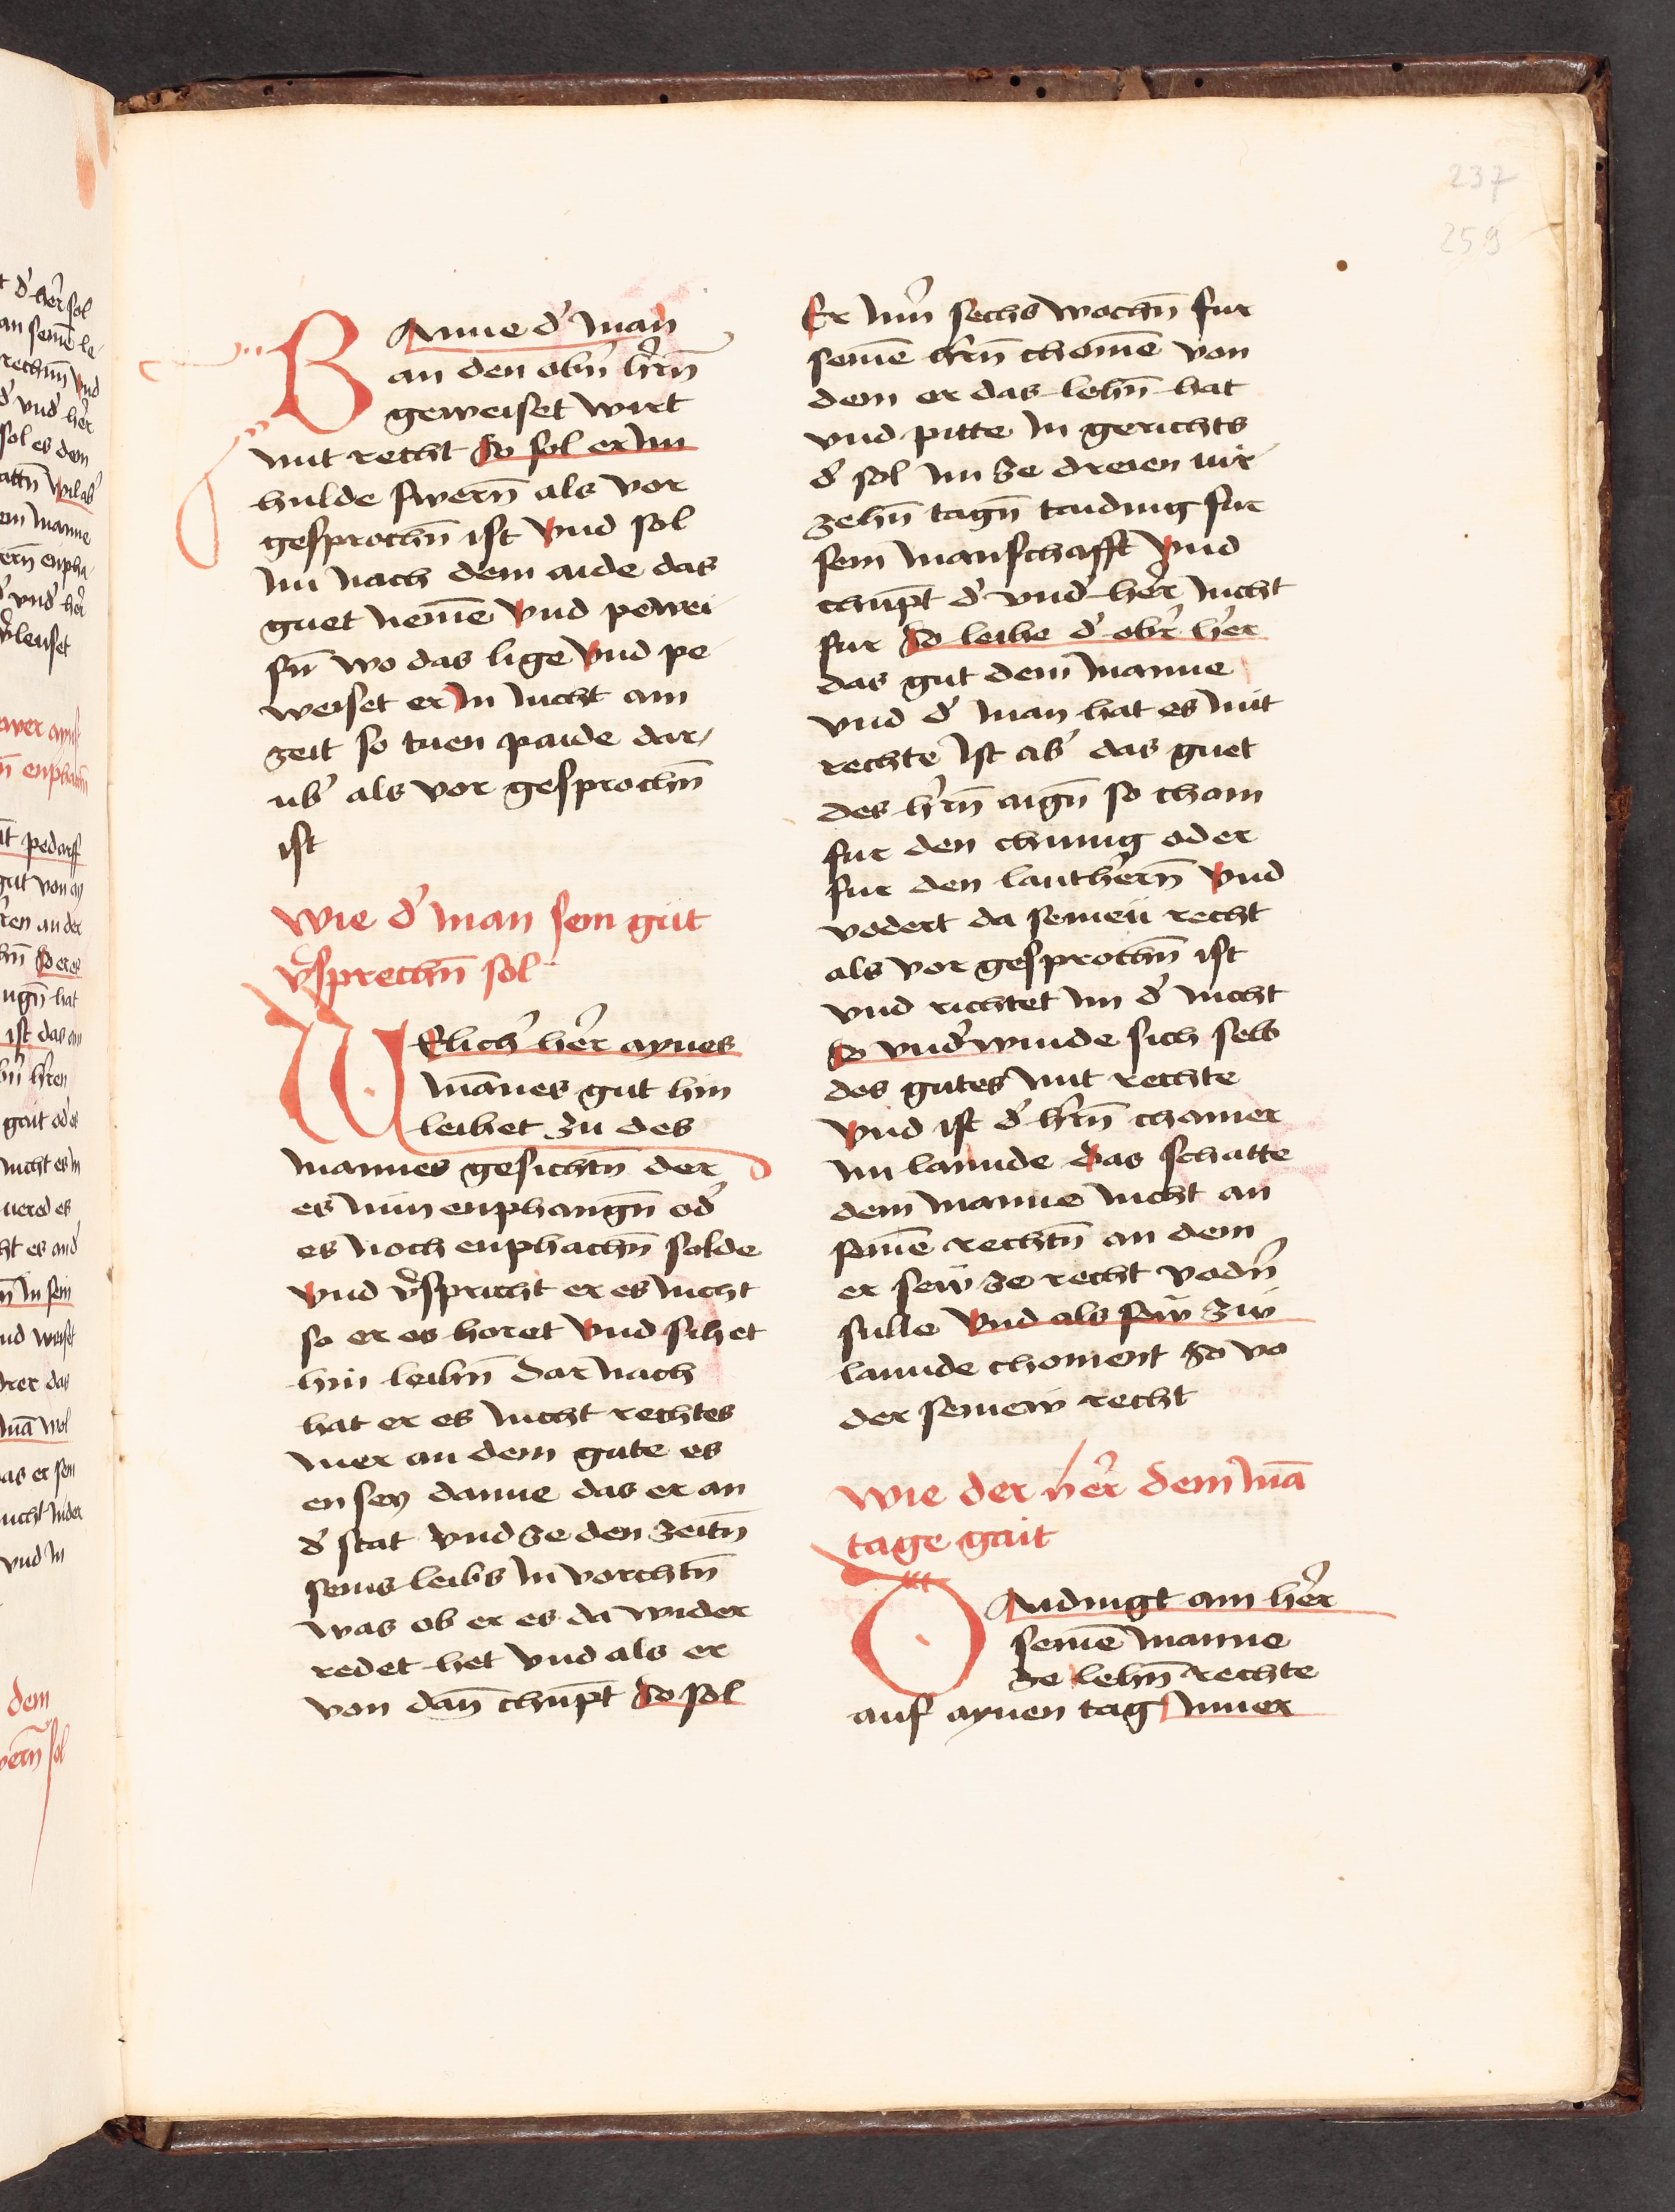 237
259
BAnne d' man
an den obn̄ hrn̄
geweiset wirt
mit recht So sol er im
hulde swern̄ als vor
gesprochn̄ ist Vnd sol
im nach dem aide das
guet nemē Vnd pewei
sn̄ wo das lige Vnd pe
weiset er In nicht am
zeit so tuen paide dar,
ub' als vor gesprochn̄
ist
Wie d' man sein gut
v'sprechn̄ sol
WElich' her aynes
mānes gut hin
leihet zu des
mannes gesichtn̄ der
es nun enphangn̄ od'
es noch enphachn̄ solde
Vnd v'spricht er es nicht
so er es horet Vnd sihet
hin leihn̄ Dar nach
hat er es nicht rechtes
mer an dem gute es
en sey danne das er an
d' stat Vnd ze den zeitn̄
seins leibs in vorchtn̄
was ob er es da wider
redet het Vnd als er
von dan̄ chūpt So sol
Er inn' sechs wochn̄ fur
seinē hrn̄ chomē von
dem er das lehn̄ hat
vnd pitte In gerichts
d' sol im ze dreien vir
zehn̄ tagn̄ taiding fur
sein manschafft Vnd
chūpt d' vnd' her nicht
fur So leihe d' obr' her
das gut dem manne
vnd d' man hat es mit
rechte Ist ab' das guet
des hrn̄ aign̄ so chom
fur den chunig oder
fur den lanthern̄ Vnd
vodert da seineu recht
als vor gesprochn̄ ist
vnd richtet im d' nicht
So vnd'winde sich selb
des gutes mit rechte
Vnd ist d' hrn̄ chainer
im lannde das schatte
dem manne nicht an
seinē rechtn̄ an dem
er sew ze recht vodn̄
sulle Vnd als sew zw
lannde choment So vo
der seinew recht
Wie der her dem mā
tage gait
TAidingt ain her
seinē manne
ze lehn̄ rechte
auf aynen tag Inner